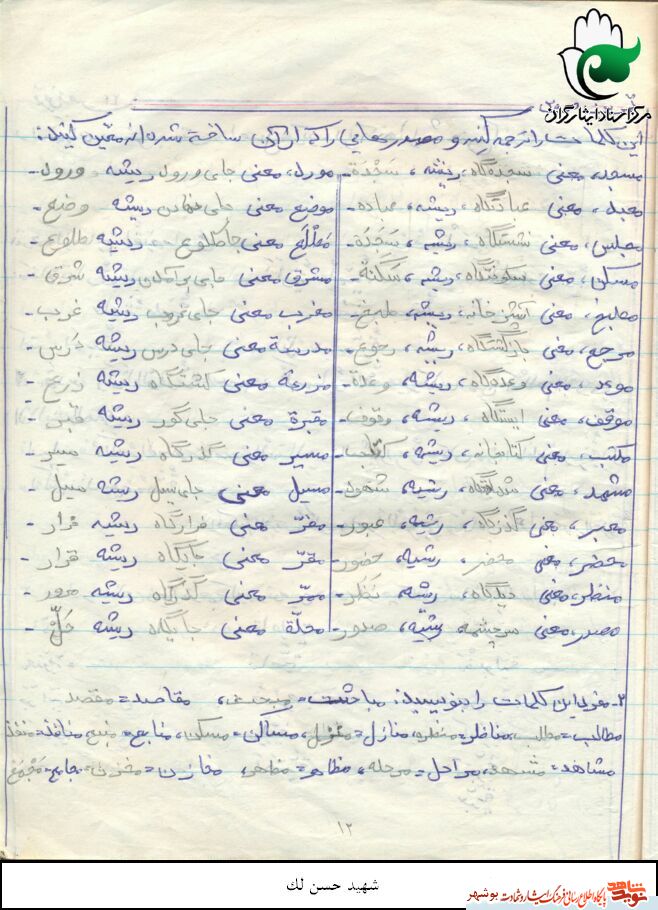 مرکز اسناد ایثارگران
این کلمات را ترجمه کنید و مصدرهایی را که از آن ساخته شده اند معین کنید:
مسجد، معنی سجده‌گاه، ریشه، سَجْدَة - مورد، معنی جای ورود ریشه، ورود -
معبد، معنی عبادتگاه، ریشه، عباده - موضع معنی جای نهادن ریشه وضع -
مجلس، معنی نشستگاه، ریشه، - مَطْلَع معنی جا طلوع ریشه طلوع -
مسکن، معنی سکونتگاه، ریشه، سکنة - مشرق معنی جایی ریشه شرق -
مطبخ، معنی آشپزخانه، ریشه، طبخ - مغرب معنی جای غروب ریشه غرب -
مرجع، معنی بازگشتگاه، ریشه، رجوع - مدرسة معنی جای درس ریشه دَرس -
موعد، معنی وعدگاه، ریشه، وعدة - مزرعة معنی کشتگاه ریشه زرع -
موقف، معنی ایستگاه، ریشه، وقوف - مقبرة معنی جای گور ریشه قبر -
مکتب، معنی کتابخانه، ریشه، - مسیر معنی گذرگاه ریشه سیر -
مشهد، معنی ریشه، شهود - مسیل معنی جای سیل ریشه سیل -
معبر، معنی گذرگاه، ریشه، عبور - مفرّ معنی فرارگاه ریشه فرار -
محضر، معنی محضر، ریشه، حضور - مقرّ معنی جایگاه ریشه قرار -
منظر، معنی دیدگاه، ریشه، نَظَر - ممرّ معنی گذرگاه ریشه مرور -
مصدر، معنی سرچشمه ریشه، صدور - محلّة معنی جایگاه ریشه حَلّ -
۲- مفرد این کلمات را بنویسید: مباحث = مبحث، مقاصد = مقصد
مطالب = مطلب، مناظر = منظر، منازل = منزل، مساکن = مسکن، منابع = منبع، منافذ = منفذ
مشاهد = مشهد، مراحل = مرحله، مظاهر = مظهر، مخازن = مخزن، مجامع = مَجْمَع
۱۲
شهید حسن لك
نوید شاهد پایگاه اطلاع رسانی فرهنگ ایثار و شهادت بوشهر